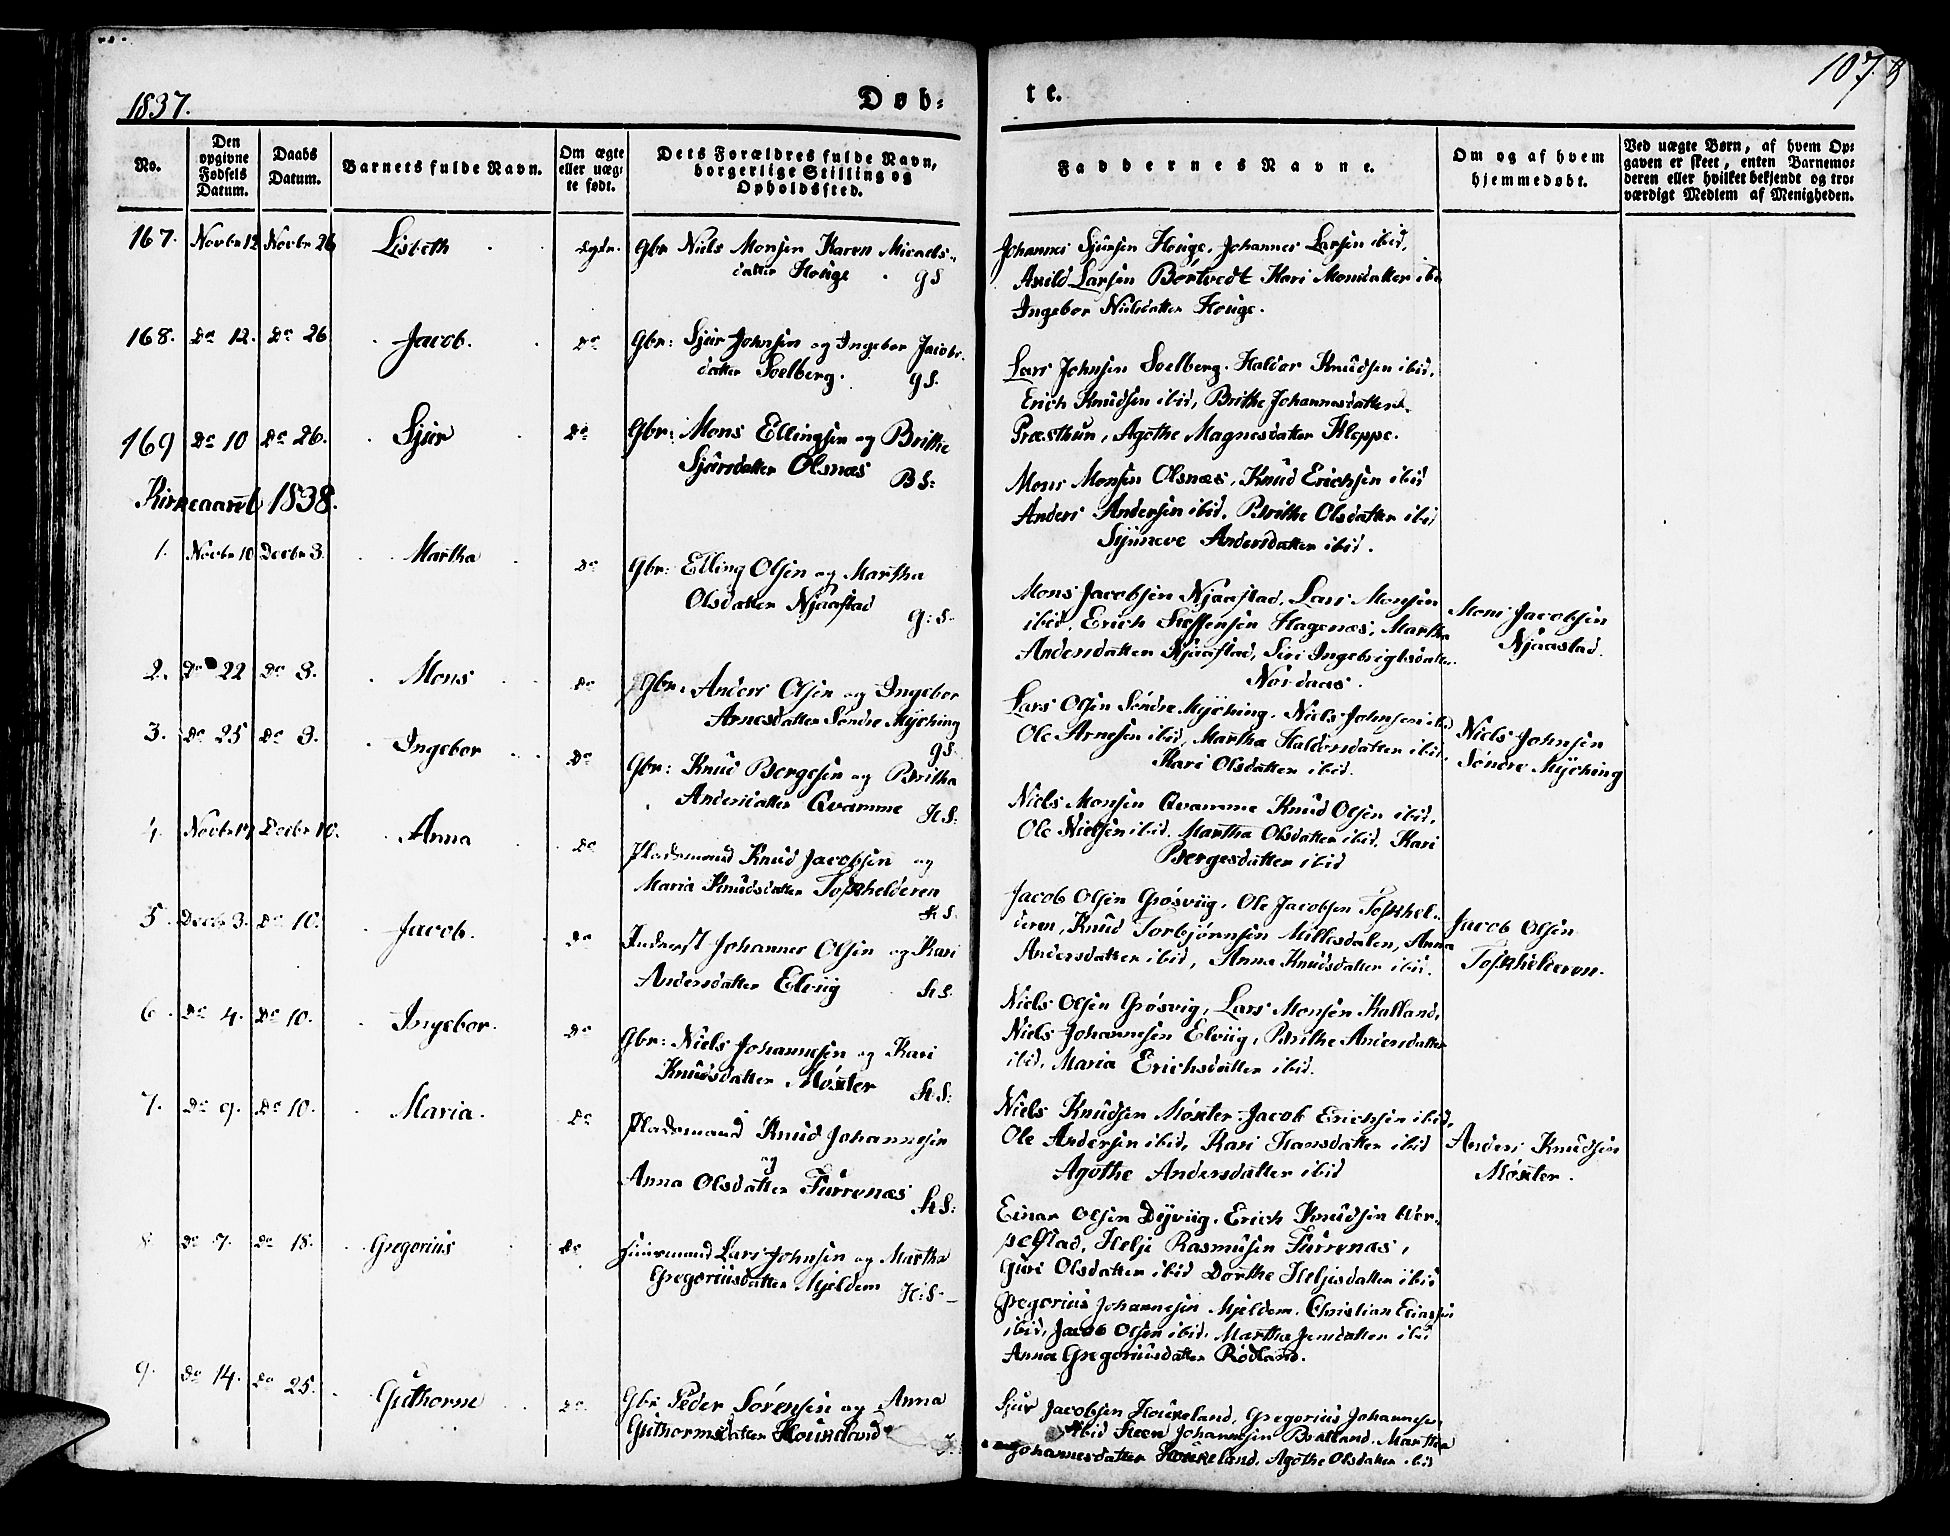 1837.
Døb-
te.
107.
No.
Den opgivne Fødsels Datum.
Daabs Datum.
Barnets fulde Navn.
Om ægte eller uægte født.
Dets Forældres fulde Navn, borgerlige Stilling og Opholdsfted.
Faddernes Navne.
Om og af hvem hjemmedøbt.
Ved uægte Børn, af hvem Opgaven er skeet, enten Barnemoderen eller hvilket bekjendt og troværdigt Medlem af Menigheden.
167. Novbr 12 Novbr 26 Lisbeth Gbr Niels Monsen Karen Micaels-
datter Houge. GS
Johannes Sjursen Houge, Johannes Larsen ibid,
Larsen Børtvedt Kari Monsdatter ibd
Ingebor Nielsdatter Houge.
168. Do 12. Do 26 Jacob. Do Gbr: Sjur Johnsen og Ingebor Jacobs-
datter Soelberg. GS.
Lars Johnsen Soelberg. Haldor Knudsen ibid.
Erich Knudsen ibid, Brithe Johannesdatter
Præsthun, Agothe Magnesdatter Kleppe.
169 Do 10 Do 26. Sjur Do Gbr: Mons Ellingsen og Brithe
Sjursdatter Olsnæs BS:
Mons Monsen Olsnæs, Knud Erichsen ibid
Anders Andersen ibid. Brithe Olsdatter ibid
Synneve Andersdatter ibid.
Kirkeaaret 1838.
1. Novbr 10 Decbr 3. Martha Do Gbr: Elling Olsen og Martha
Olsdatter Njaastad G:S.
Mons Jacobsen Njaastad, Lars Monsen
ibid. Erich Steffensen Hagenæs, Martha
Andersdatter Njaastad, Siri Ingebrigtsdatter
Nordaas.
Mons Jacobsen
Njaastad.
2. Do 22 Do 3. Mons Do Gbr: Anders Olsen og Ingebor
Arnesdatter Søndre Myching
GS.
Lars Olsen Søndre Myching, Niels Johnsen ibid
Ole Arnesen ibid, Martha Haldorsdatter ibid,
Kari Olsdatter ibid.
Niels Johnsen
Søndre Myching
3. Do 25 Do 3. Ingebor Do Gbr: Knud Bergesen og Britha
Andersdatter Qvamme HS:
Niels Monsen Qvamme Knud Olsen ibid.
Ole Nielsen ibid. Martha Olsdatter ibid. Kari
Bergesdatter ibid
4. Decbr 10. Anna Do Pladsmand Knud Jacobsen og
Maria Knudsdatter Toskhelderen
HS.
Jacob Olsen Grøsviig, Ole Jacobsen Toskhel-
deren, Knud Torbjørnsen Millesdalen, Anna
Andersdatter ibid, Anna Knudsdatter ibid.
Jacob Olsen
Toskhelderen.
5. Decb 3. Do 10. Jacob. Do Inderst Johannes Olsen og Kari
Andersdatter Elviig HS.
Niels Olsen Grøsvig, Lars Monsen Kalland,
Niels Johannesen Elviig, Brithe Andersdatter
ibid, Maria Erichsdatter ibid.
6. Do 4. Do 10. Ingebor. Do Gbr: Niels Johannesen og Kari
Knudsdatter Møxter HS:
Niels Knudsen Møxter Jacob Erichsen ibid,
Ole Andersen ibid, Kari Hansdatter ibid
Agothe Andersdatter ibid
Anders Knudsen
Møxter.
7. Do 9. Do 10. Maria. Do Pladsmand Knud Johannesen
og
Anna Olsdatter Furrenæs HS:
Einar Olsen Dyviig. Erich Knudsen Wer-
pelstad, Helje Rasmusen Furrenæs,
Guri Olsdatter ibid Dorthe Heljesdatter ibid
8 Do 7. Do 18. Gregorius Do Huusmand Lars Johnsen og Martha
Gregoriusdatter Mjeldem H:S-
Gregorius Johannesen Mjeldem. Christian Eliassen
ibid, Jacob Olsen ibid. Martha Jensdatter ibid
Anna Gregoriusdatter Rødland.
9. Do 14. Do 25. Guthorm Do. Gbr Peder Sørensen og Anna
Guthormsdatter Houkeland
Sjur Jacobsen Houkeland, Gregorius Johannesen
ibid Steen Johannesen Bratland. Martha
Johannesdatter Houkeland. Agothe Olsdatter ibid